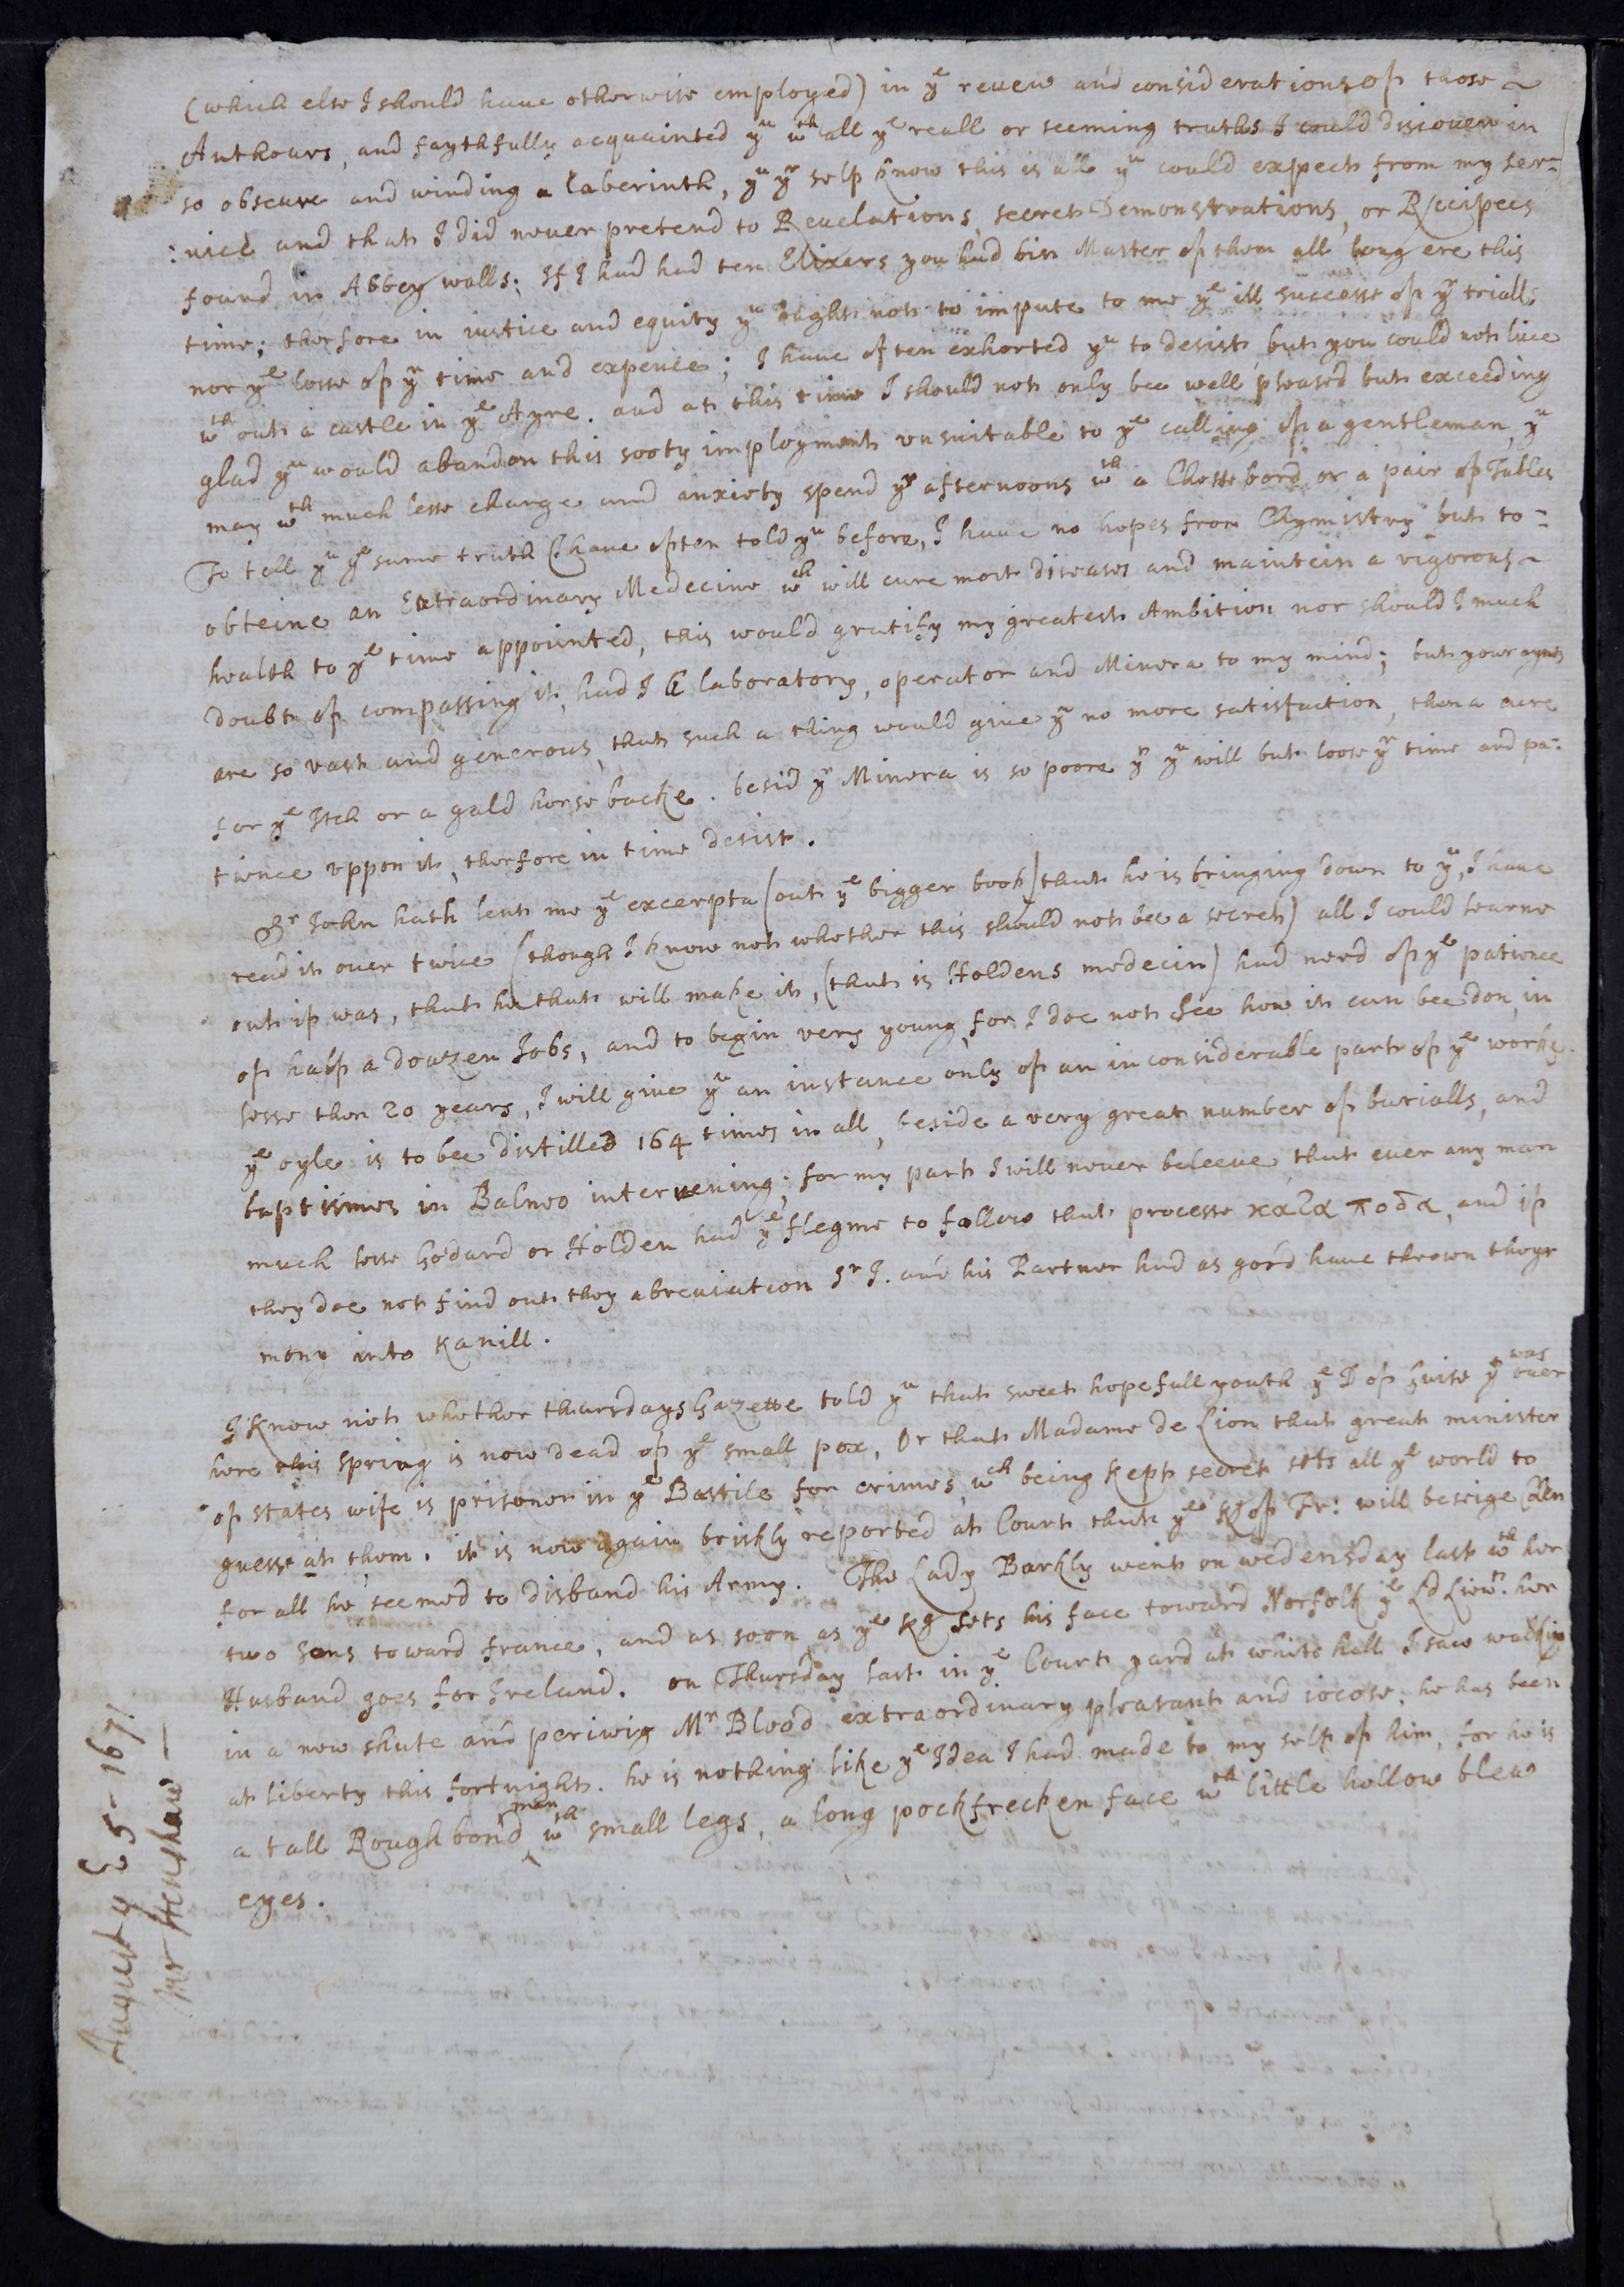 (which else I should haue otherwise employed) in yᵉ reuew and considerations of those ~
Authours, and faythfully acquainted yᵘ wᵗʰ all yᵉ reall or seeming truths I could discouer in
so obscure and winding a laberinth, yᵘ yʳ self know this is all yᵘ could expect from my ser=
:uice and that I did neuer pretend to Reuelations, secret Demonstrations, or Recipees
found in Abbey walls; If I had had ten Elixars you had bin Master of them all long ere this
time; therfore in iustice and equity yᵘ ought not to impute to me yᵉ ill successe of yʳ trialls
nor yᵉ losse of yʳ time and expence; I haue often exhorted yᵘ to desist but you could not liue
wᵗʰ out a castle in yᵉ Ayre. and at this time I should not only bee well pleased but exceeding
glad yᵘ would abandon this sooty imployment vnsuitable to yᵉ calling of a gentleman, yᵘ
may wᵗʰ much lesse charge and anxiety spend yʳ afternoons wᵗʰ a Chesse bord or a pair of Tables
To tell yᵘ yᵉ same truth I haue often told yᵘ before, I haue no hopes from Chymistry but to =
obteine an Extraordinary Medecine wᶜʰ will cure most diseases and maintein a vigorous ~
health to yᵉ time appointed, this would gratify my greatest Ambition nor should I much
doubt of compassing it, had I a laboratory, operator and Minera to my mind; but your aymes
are so vast and generous, that such a thing would giue yᵘ no more satisfaction, then a cure
for yᵉ Itch or a gald horse backe. besid yʳ Minera is so poore yᵗ yᵘ will but loose yʳ time and pa=
tience vppon it, therfore in time desist.
Sʳ John hath lent me yᵉ excerpta (out yᵉ bigger book) that he is bringing down to yᵘ, I haue
read it ouer twice (though I know not whether this should not bee a secret) all I could learne
out if was, that he that will make it, (that is Holdens medecin) had need of yᵉ patience
of half a douzen Jobs, and to begin very young, for I doe not see how it can bee don, in
lesse then 20 years, I will giue yᵘ an instance only of an inconsiderable part of yᵉ worke.
yᵉ oyle is to bee distilled 164 times in all, beside a very great number of burialls, and
baptismes in Balneo interuening; for my part I will neuer beleeue that euer any man
much lesse Godard or Holden had yᵉ flegme to follow that processe κατα ποδα, and if
they doe not find out they abreuiation Sʳ J. and his Partner had as good haue thrown theyr
mony into Kanill.
I know not whether thursdays Gazette told yᵘ that sweet hopefull youth yᵉ D of Guise yᵗ was ouer
here this Spring is now dead of yᵉ small pox, Or that Madame de Lion that great minister
of states wife is prisoner in yᵉ Bastile for crimes, wᶜʰ being kept secret sets all yᵉ world to
guesse at them. it is now again briskly reported at Court that yᵉ Kg of Fr: will beseige
for all he seemed to disband his Army. The Lady Barkly went on wedensday last wᵗʰ her
two sons toward france, and as soon as yᵉ Kg sets his face toward Norfolk yᵉ Ld Liewᵗ. her
Husband goes for Ireland. on Thursday last in yᵉ Court yard at white hall I saw walking
in a new shute and periwig Mʳ Blood extraordinary pleasant and iocose; he has been
at liberty this fortnight. he is nothing like yᵉ Idea I had made to my self of him, for he is
a tall Rough bon'd man wᵗʰ small legs, a long pockfrecken face wᵗʰ little hollow blew
eyes.
August yᵉ 5 - 1671
Mr Henshaw —